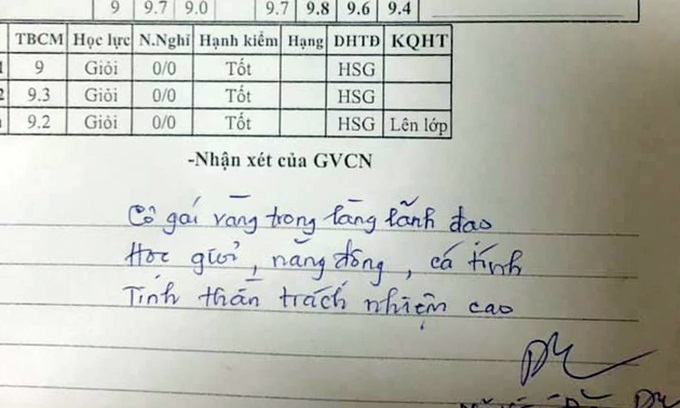 9 9.7 9.0 9.7 9.8 9.6 9.4
TBCM Học lực N.Nghỉ Hạnh kiểm Hạng DHTĐ KQHT
1 9 Giỏi 0/0 Tốt HSG
2 9.3 Giỏi 0/0 Tốt HSG
9.2 Giỏi 0/0 Tốt HSG Lên lớp
-Nhận xét của GVCN
Cô gái vàng trong làng lãnh đạo
Học giỏi, năng động, cá tính
Tinh thần trách nhiệm cao